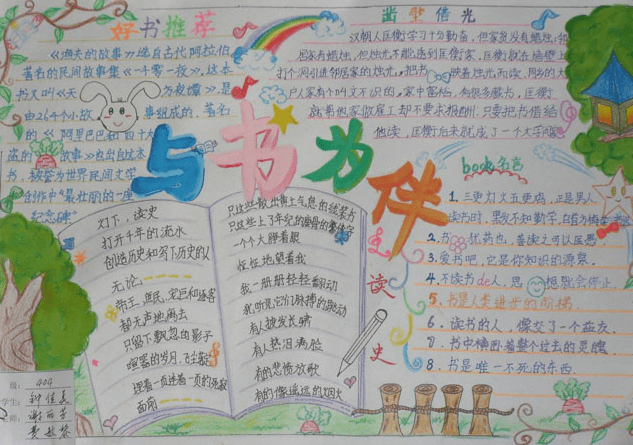 好书推荐
《渔夫的故事》选自古代阿拉伯
著名的民间故事集《一千零一夜》,这本
书又叫《天方夜谭》,是
由264个小故事组成的,著名
的《阿里巴巴和四十大
盗的故事》也出自这本
书,被誉为世界民间文学
创作中"最壮丽的一座
纪念碑"
凿壁借光
汉朝人匡衡学习十分勤奋,但家贫没有蜡烛,邻
居家有蜡烛,但烛光不能透到匡衡家,匡衡就在墙壁上
打个洞引进邻居家的烛光,把书映着烛光而读,同乡的大
户人家有个叫文不识的,家中富裕,有很多藏书,匡衡
就帮他家做雇工却不要求报酬,只要把书借给
他读,匡衡后来就成了一个大学
与书为伴
灯下,读史
打开千年的流水
创造历史和写下历史的人
无论
帝王,庶民,宠臣和逐客
都无声地离去
只留下飘忽的影子
喧嚣的岁月
一页一页的
面前
只这些散出黄土气息的线装书
只这些上了年纪的
一个大睁着眼
怔怔地望着我
我一册册轻轻翻动
我听见它们脉搏的跳动
有人披发长啸
有人热泪满脸
有的悲愤放歌
有的像遥远的烟火
读
史
book名言
1.三更灯火五更鸡,正是男人
读书时,黑发不知勤学,白首方悔
2.书犹药也,善读之可以医愚
3.爱书吧,它是你知识的源泉.
4.不读书de人,思想就会停止.
5.书是人类进步的阶梯.
6.读书的人,像交了一个益友.
7.书中横卧着整个过去的灵魂
8.书是唯一不死的东西.
级:404
学生:
师: